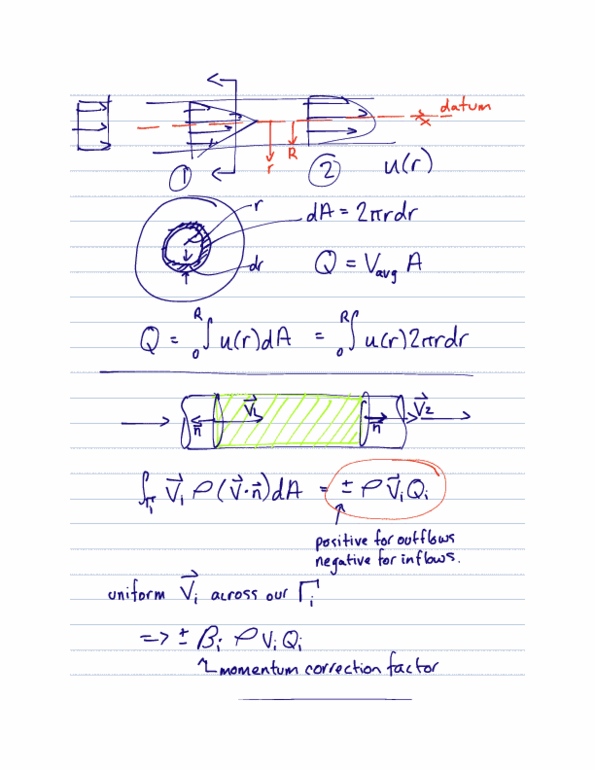 datum
r R
① ② u(r)
r
dA = 2πrdr
dr
Q = Vavg A
Q = ₀∫ᴿ u(r)dA = ₀∫ᴿ u(r)2πrdr
n⃗ V⃗₁ n⃗ V⃗₂
∫Γᵢ V⃗ᵢ ρ(V⃗·n⃗)dA = ± ρ V⃗ᵢ Qᵢ
positive for outflows
negative for inflows.
uniform V⃗ᵢ across our Γᵢ
=> ± βᵢ ρ Vᵢ Qᵢ
momentum correction factor